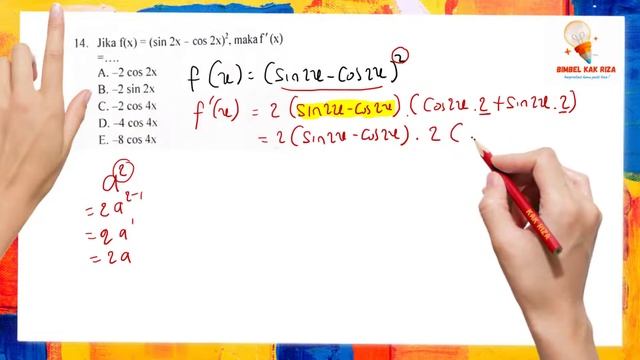 14. Jika f(x) = (sin 2x – cos 2x)², maka f'(x)
=....
A. –2 cos 2x
B. –2 sin 2x
C. –2 cos 4x
D. –4 cos 4x
E. –8 cos 4x
f(x) = (sin2x-cos2x)²
f'(x) = 2 (sin2x-cos2x).(cos2x.2+sin2x.2)
= 2(sin2x-cos2x). 2 (
a²
= 2a²⁻¹
= 2a¹
= 2a
BIMBEL KAK RIZA
KAK RIZA